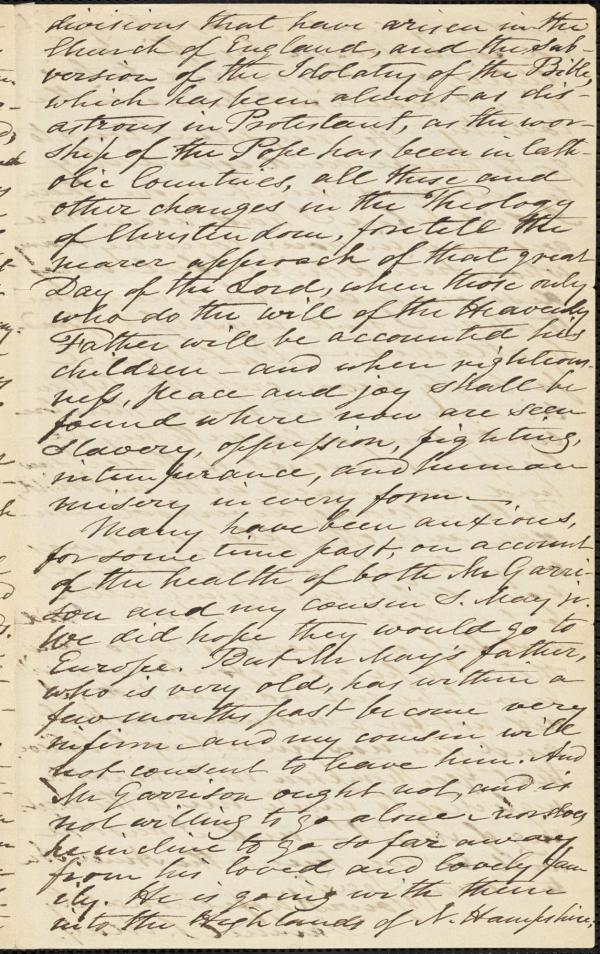 divisions that have arisen in the
Church of England, and the Sub-
version of the Idolatry of the Bible,
which has been almost as dis-
astrous in Protestant, as the wor-
ship of the Pope has been in Cath-
olic Countries, all these and
other changes in the Theology
of Christendom, foretell the
nearer approach of that great
Day of the Lord, when those only
who do the will of the Heavenly
Father will be accounted his
children - and when righteous-
ness, peace and joy shall be
found where now are seen
Slavery, oppression, fighting,
intemperance, and human
misery in every form.
Many have been anxious,
for some time past, on account
of the health of both Mr Garri-
son and my cousin S. May jr.
We did hope they would go to
Europe. But Mr May's father,
who is very old, has within a
few months past become very
infirm - and my cousin will
not consent to leave him. And
Mr Garrison ought not, and is
not willing to go alone - nor does
he incline to go so far away
from his loved and lovely fam-
ily. He is going with them
into the Highlands of N. Hampshire,